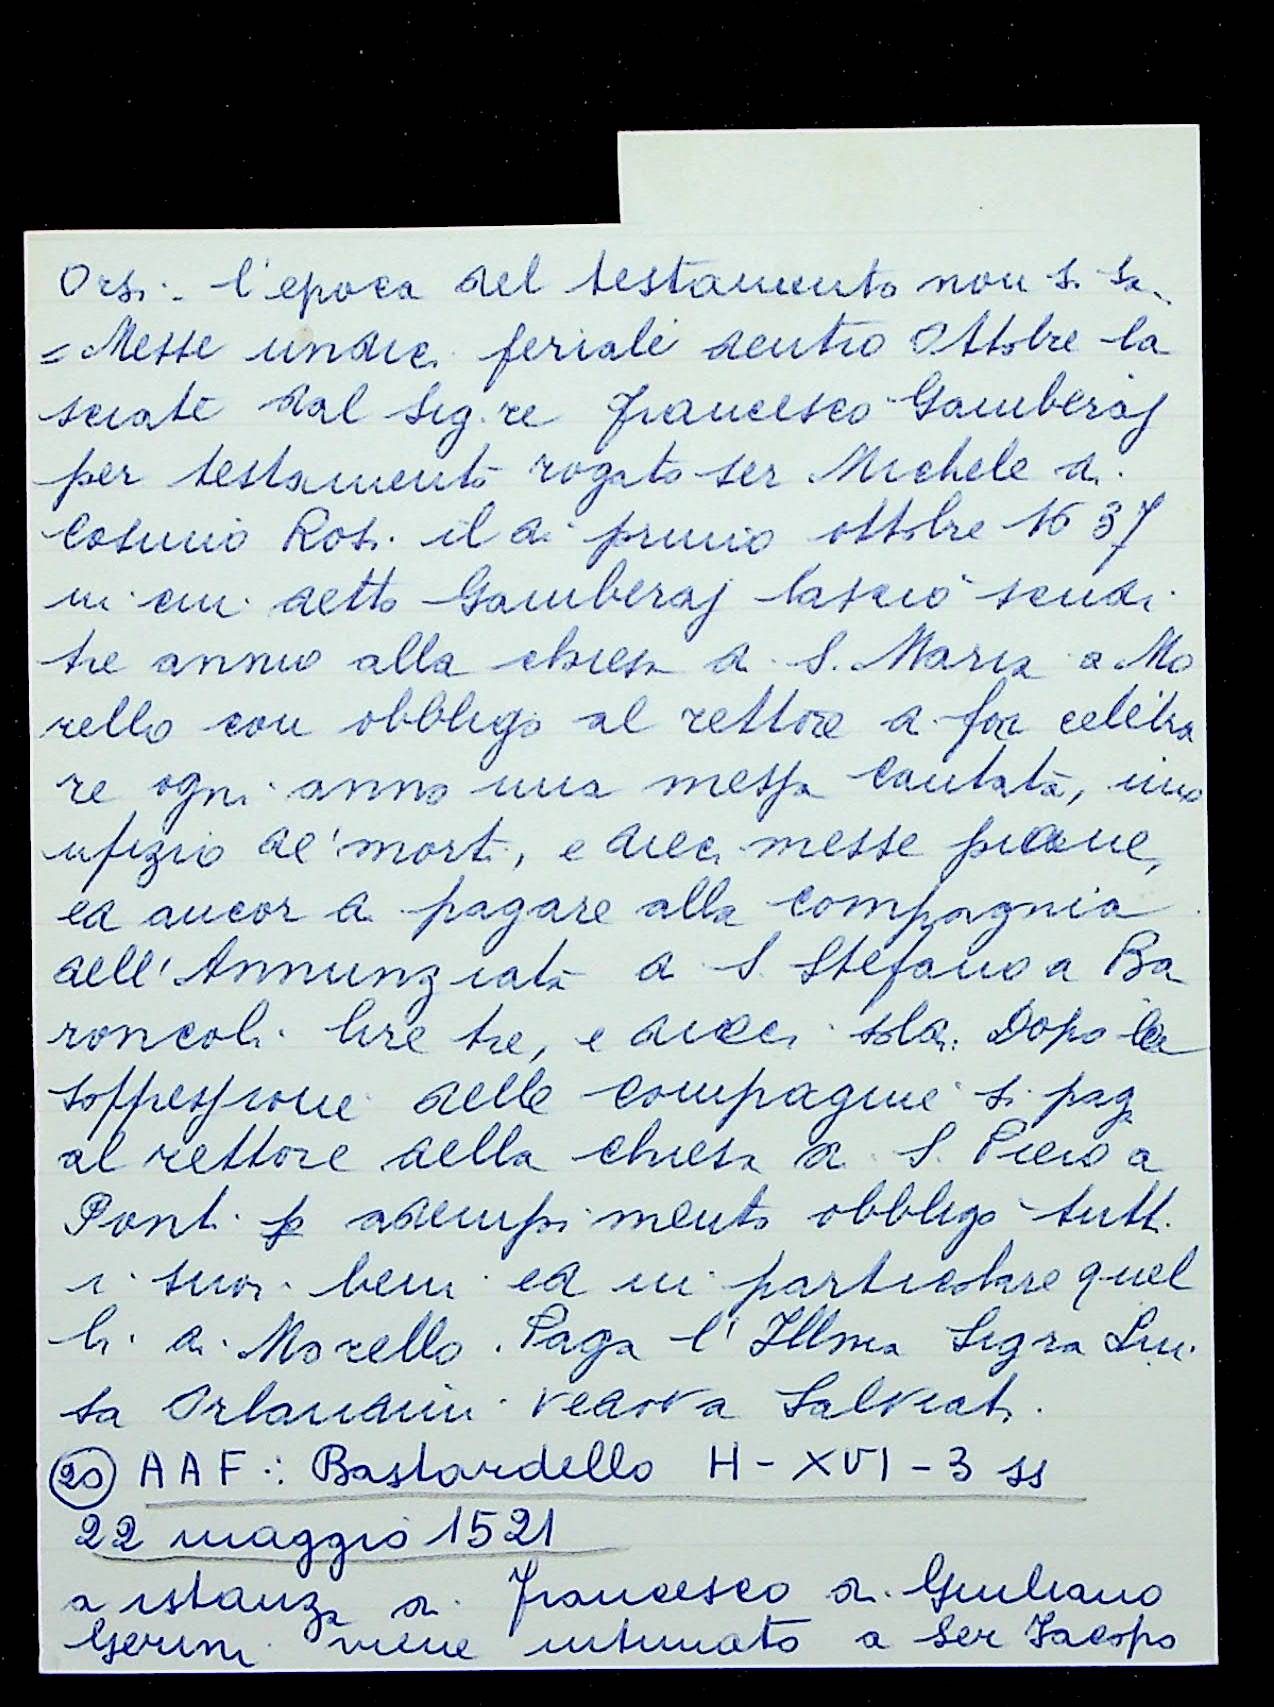 Orsi - l'epoca del testamento non si sa.
= Messe undici feriali dentro Ottobre la
sciate dal Sig.re Francesco Gamberaj
per testamento rogato ser Michele di
Cosimo Rosi il di primo ottobre 1637
in cui detto Gamberaj lasciò scudi
tre annuo alla chiesa di S. Maria a Mo
rello con obbligo al rettore di far celebra
re ogni anno una messa cantata, uno
ufizio de' morti, e dieci messe piane,
ed ancor di pagare alla compagnia
dell'Annunziata di S. Stefano a Ba
roncoli lire tre, e dieci soldi. Dopo la
soppressione delle compagnie si paga
al rettore della chiesa di S. Piero a
Ponti p adempimento obbligo tutti
i suoi beni ed in particolare quel
li di Morello. Paga l'Illma Sigra Lui
sa Orlandini vedova Salviati.
20 AAF: Bastardello H - XVI - 3 ss
22 maggio 1521
a istanza di Francesco di Giuliano
Gerini viene intimato a Ser Jacopo